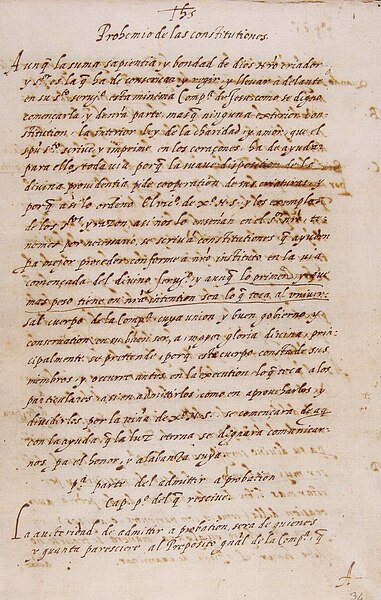 Ihs
Prohemio de las constitutiones.
Aunq̃ la suma sapientia y bondad de dios nr̃o criador
y s.or es la q̃ ha de conseruar y regir y lleuar adelante
en su s.to seruj.o esta minima Comp.a de Jesu como se digno
començarla y de nr̃a parte mas q̃ ninguna exterior con-
stitution, la interior ley de la charidad y amor que el
spũ s.to scriue, y imprime en los coraçones ha de ayudar
para ello, todauia porq̃ la suaue disposicion de la
diuina prouidentia pide cooperation de sus criaturas y
porq̃ asi lo ordeno El vic.o de x.o N. s. y los exemplos
de los s.tos y razon asi nos lo enseñan en el s.or nr̃o, te-
nemos por necessario se scriuan constitutiones q̃ ayuden
pa mejor proceder conforme a nr̃o instituto en la uia
començada del diuino seruj.o, y aunq̃ lo primero y q̃
mas peso tiene en nr̃a intention sea lo q̃ toca al uniuer-
sal cuerpo de la Comp.a cuya union y buen gobierno, y
conseruation en su bien ser, a mayor gloria diuina, prin-
cipalmente se pretende, porq̃ este cuerpo consta de sus
miembros, y occurre antes en la execution lo q̃ toca a los
particulares asi en admitirlos como en aprouecharlos, y
diuidirlos por la uiña de x.o N. s. se començara de aq̃
con la ayuda q̃ la luz eterna se dignara comunicar-
nos pa el honor, y alabanza suya.
p.a parte del admitir a probation
Cap. p.o del q̃ reseiue.
La auctoridad de admittir a probation, sera de quienes
y quanta paresciere al Preposito gñal de la Comp.a, q̃